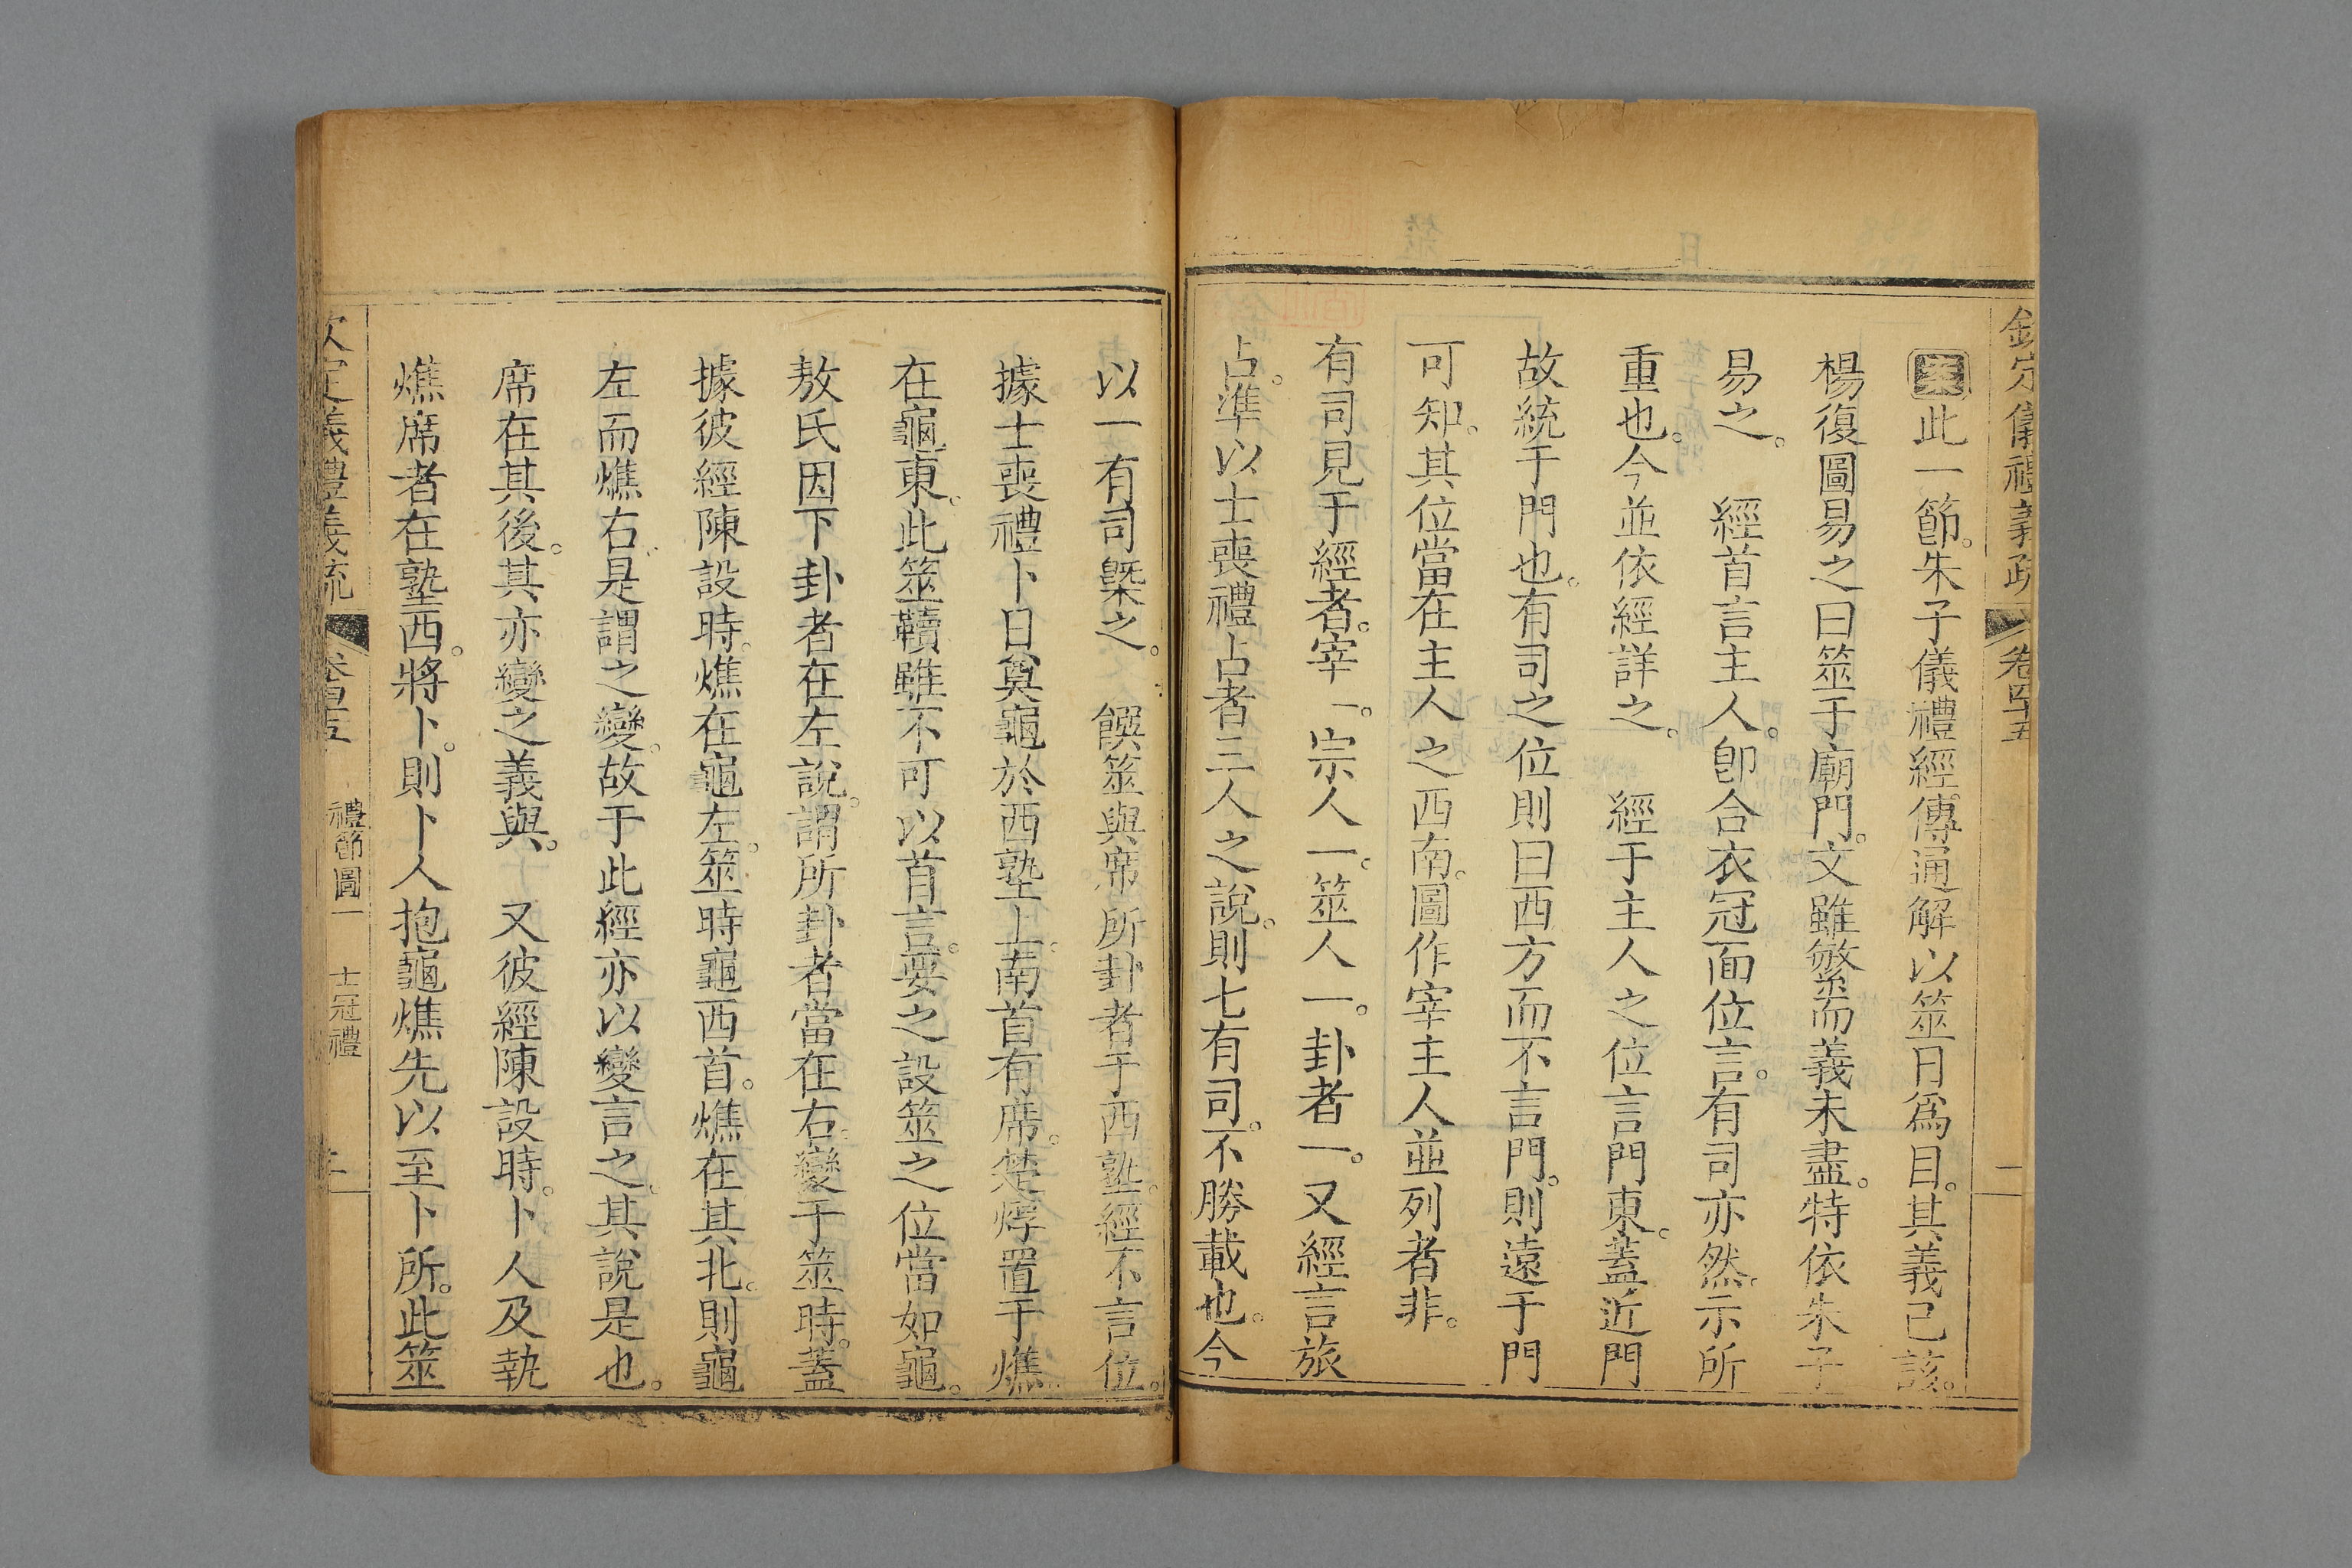 欽定儀禮義疏 卷四十五 二
案此一節。朱子儀禮經傳通解以筮日爲目。其義已該。
楊復圖易之曰筮于廟門。文雖繁而義未盡。特依朱子
易之。 經首言主人。卽合衣冠面位言。有司亦然。示所
重也。今並依經詳之。 經于主人之位言門東。蓋近門
故統于門也。有司之位則曰西方而不言門。則遠于門
可知。其位當在主人之西南。圖作宰主人並列者非。
有司見于經者。宰一。宗人一。筮人一。卦者一。又經言旅
占。準以士喪禮占者三人之說。則七有司。不勝載也。今
以一有司槩之。 饌筮與席所卦者于西塾。經不言位。
據士喪禮卜日奠龜於西塾上。南首有席。楚焞置于燋。
在龜東。此筮韇雖不可以首言。要之設筮之位當如龜。
敖氏因下卦者在左說。謂所卦者當在右。變于筮時。蓋
據彼經陳設時。燋在龜左。筮時龜西首。燋在其北。則龜
左而燋右。是謂之變。故于此經亦以變言之。其說是也。
席在其後。其亦變之義與。 又彼經陳設時。卜人及執
燋席者在塾西。將卜。則卜人抱龜燋先以至卜所。此筮
欽定儀禮義疏 卷四十五 禮節圖一 士冠禮